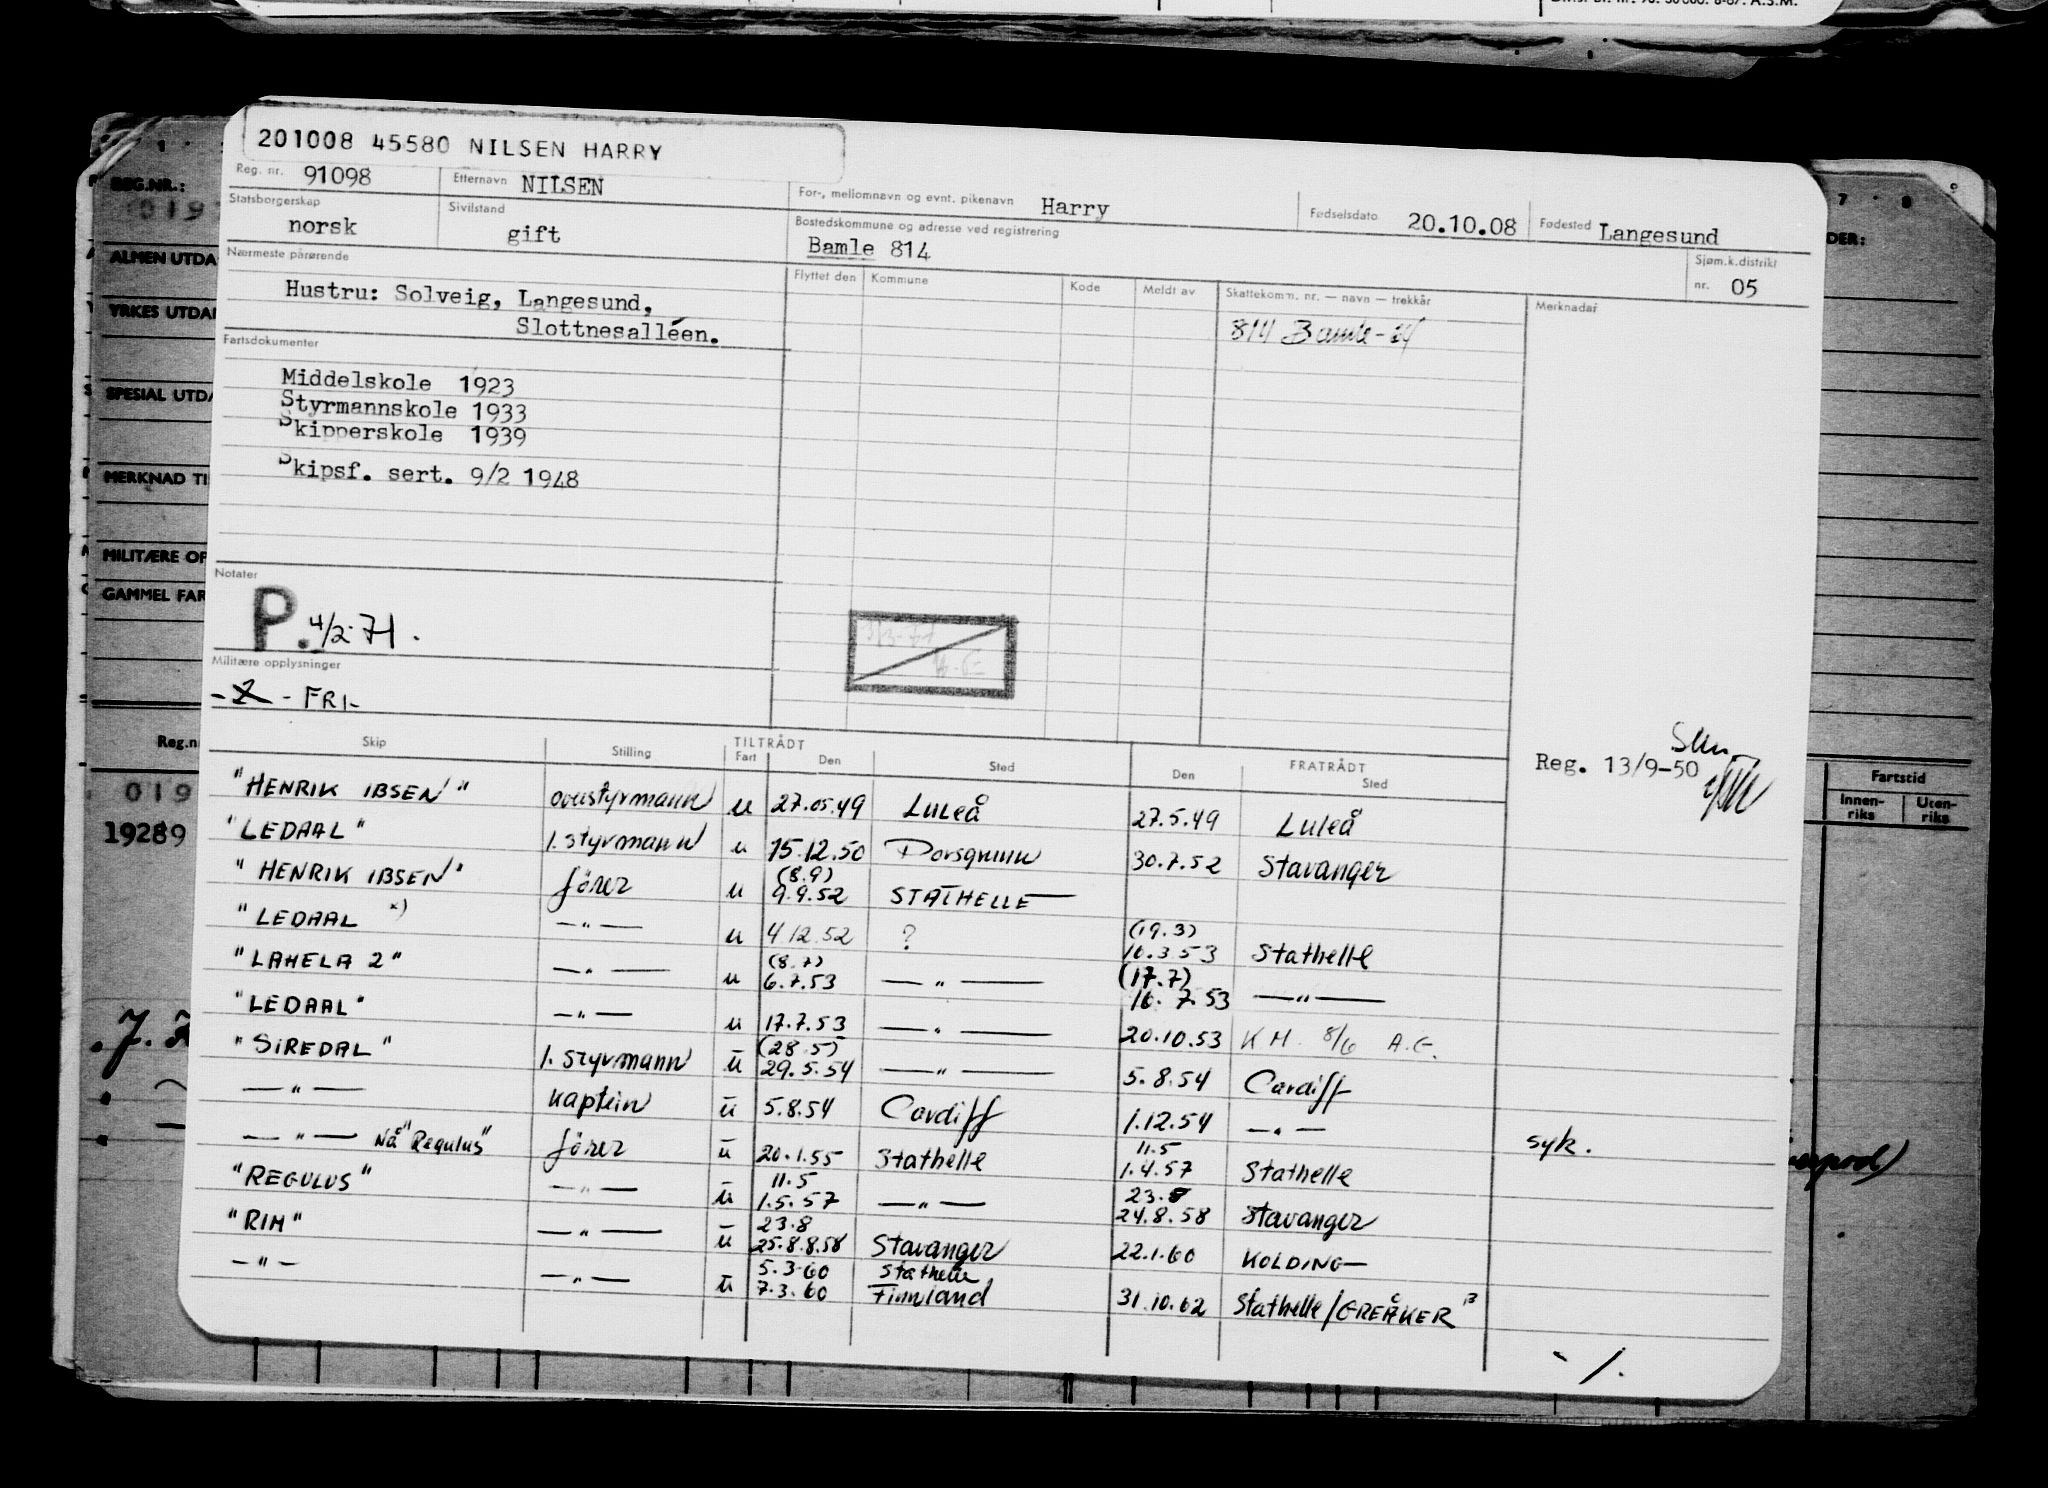 201008 45580 NILSEN HARRY
Reg. nr. 91098 Etternavn NILSEN For-, mellomnavn og evnt. pikenavn Harry Fødselsdato 20.10.08 Fødested Langesund
Statsborgerskap norsk Sivilstand gift Bostedskommune og adresse ved registrering Bamle 814 Sjøm.k.distrikt nr. 05
Nærmeste pårørende Flyttet den Kommune Kode Meldt av Skattekomm. nr. — navn — trekkår Merknader
Hustru: Solveig, Langesund,
Slottnesalléen.
814 Bamle-
Fartsdokumenter
Middelskole 1923
Styrmannskole 1933
Skipperskole 1939
Skipsf. sert. 9/2 1948
Notater
P. 4/2-71.
Militære opplysninger
- FRI-
Reg. 13/9-50
Skip Stilling TILTRÅDT Fart Den Sted FRATRÅDT Den Sted
"HENRIK IBSEN" overstyrmann u 27.05.49 Luleå 27.5.49 Luleå
"LEDAAL" 1. styrmann u 15.12.50 Porsgrunn 30.7.52 Stavanger
"HENRIK IBSEN" förer u (8.9) 9.9.52 STATHELLE
"LEDAAL x) —"— u 4 12.52 ? (19.3) 10.3.53 Stathelle
"LAHELA 2" —"— u (8.7) 6.7.53 —"— (17.7) 10.7.53 —"—
"LEDAAL" —"— u 17.7.53 —"— 20.10.53 K M. 8/6 A.E.
"SIREDAL" 1. styrmann u (28.5) 29.5.54 —"— 5.8.54 Cardiff
—"— kaptein u 5.8.54 Cardiff 1.12.54 —"— syk.
—"— Nå "Regulus" förer u 20.1.55 Stathelle 11.5 1.4.57 Stathelle
"REGULUS" —"— u 11.5 1.5.57 —"— 23.8 24.8.58 Stavanger
"RIM" —"— u 23.8 25.8.8.58 Stavanger 22.1.60 KOLDING
—"— —"— u 5.3-60 7.3.60 Stathelle Finnland 31.10.62 Stathelle/GREÅKER
-/.
REG.NR.:
ALMEN UTDA
YRKES UTDA
SPESIAL UTDA
MERKNAD TI
MILITÆRE OP
GAMMEL FAR
Reg.n
019
19289
7 8
DER:
Fartstid
Innen-riks Uten-riks